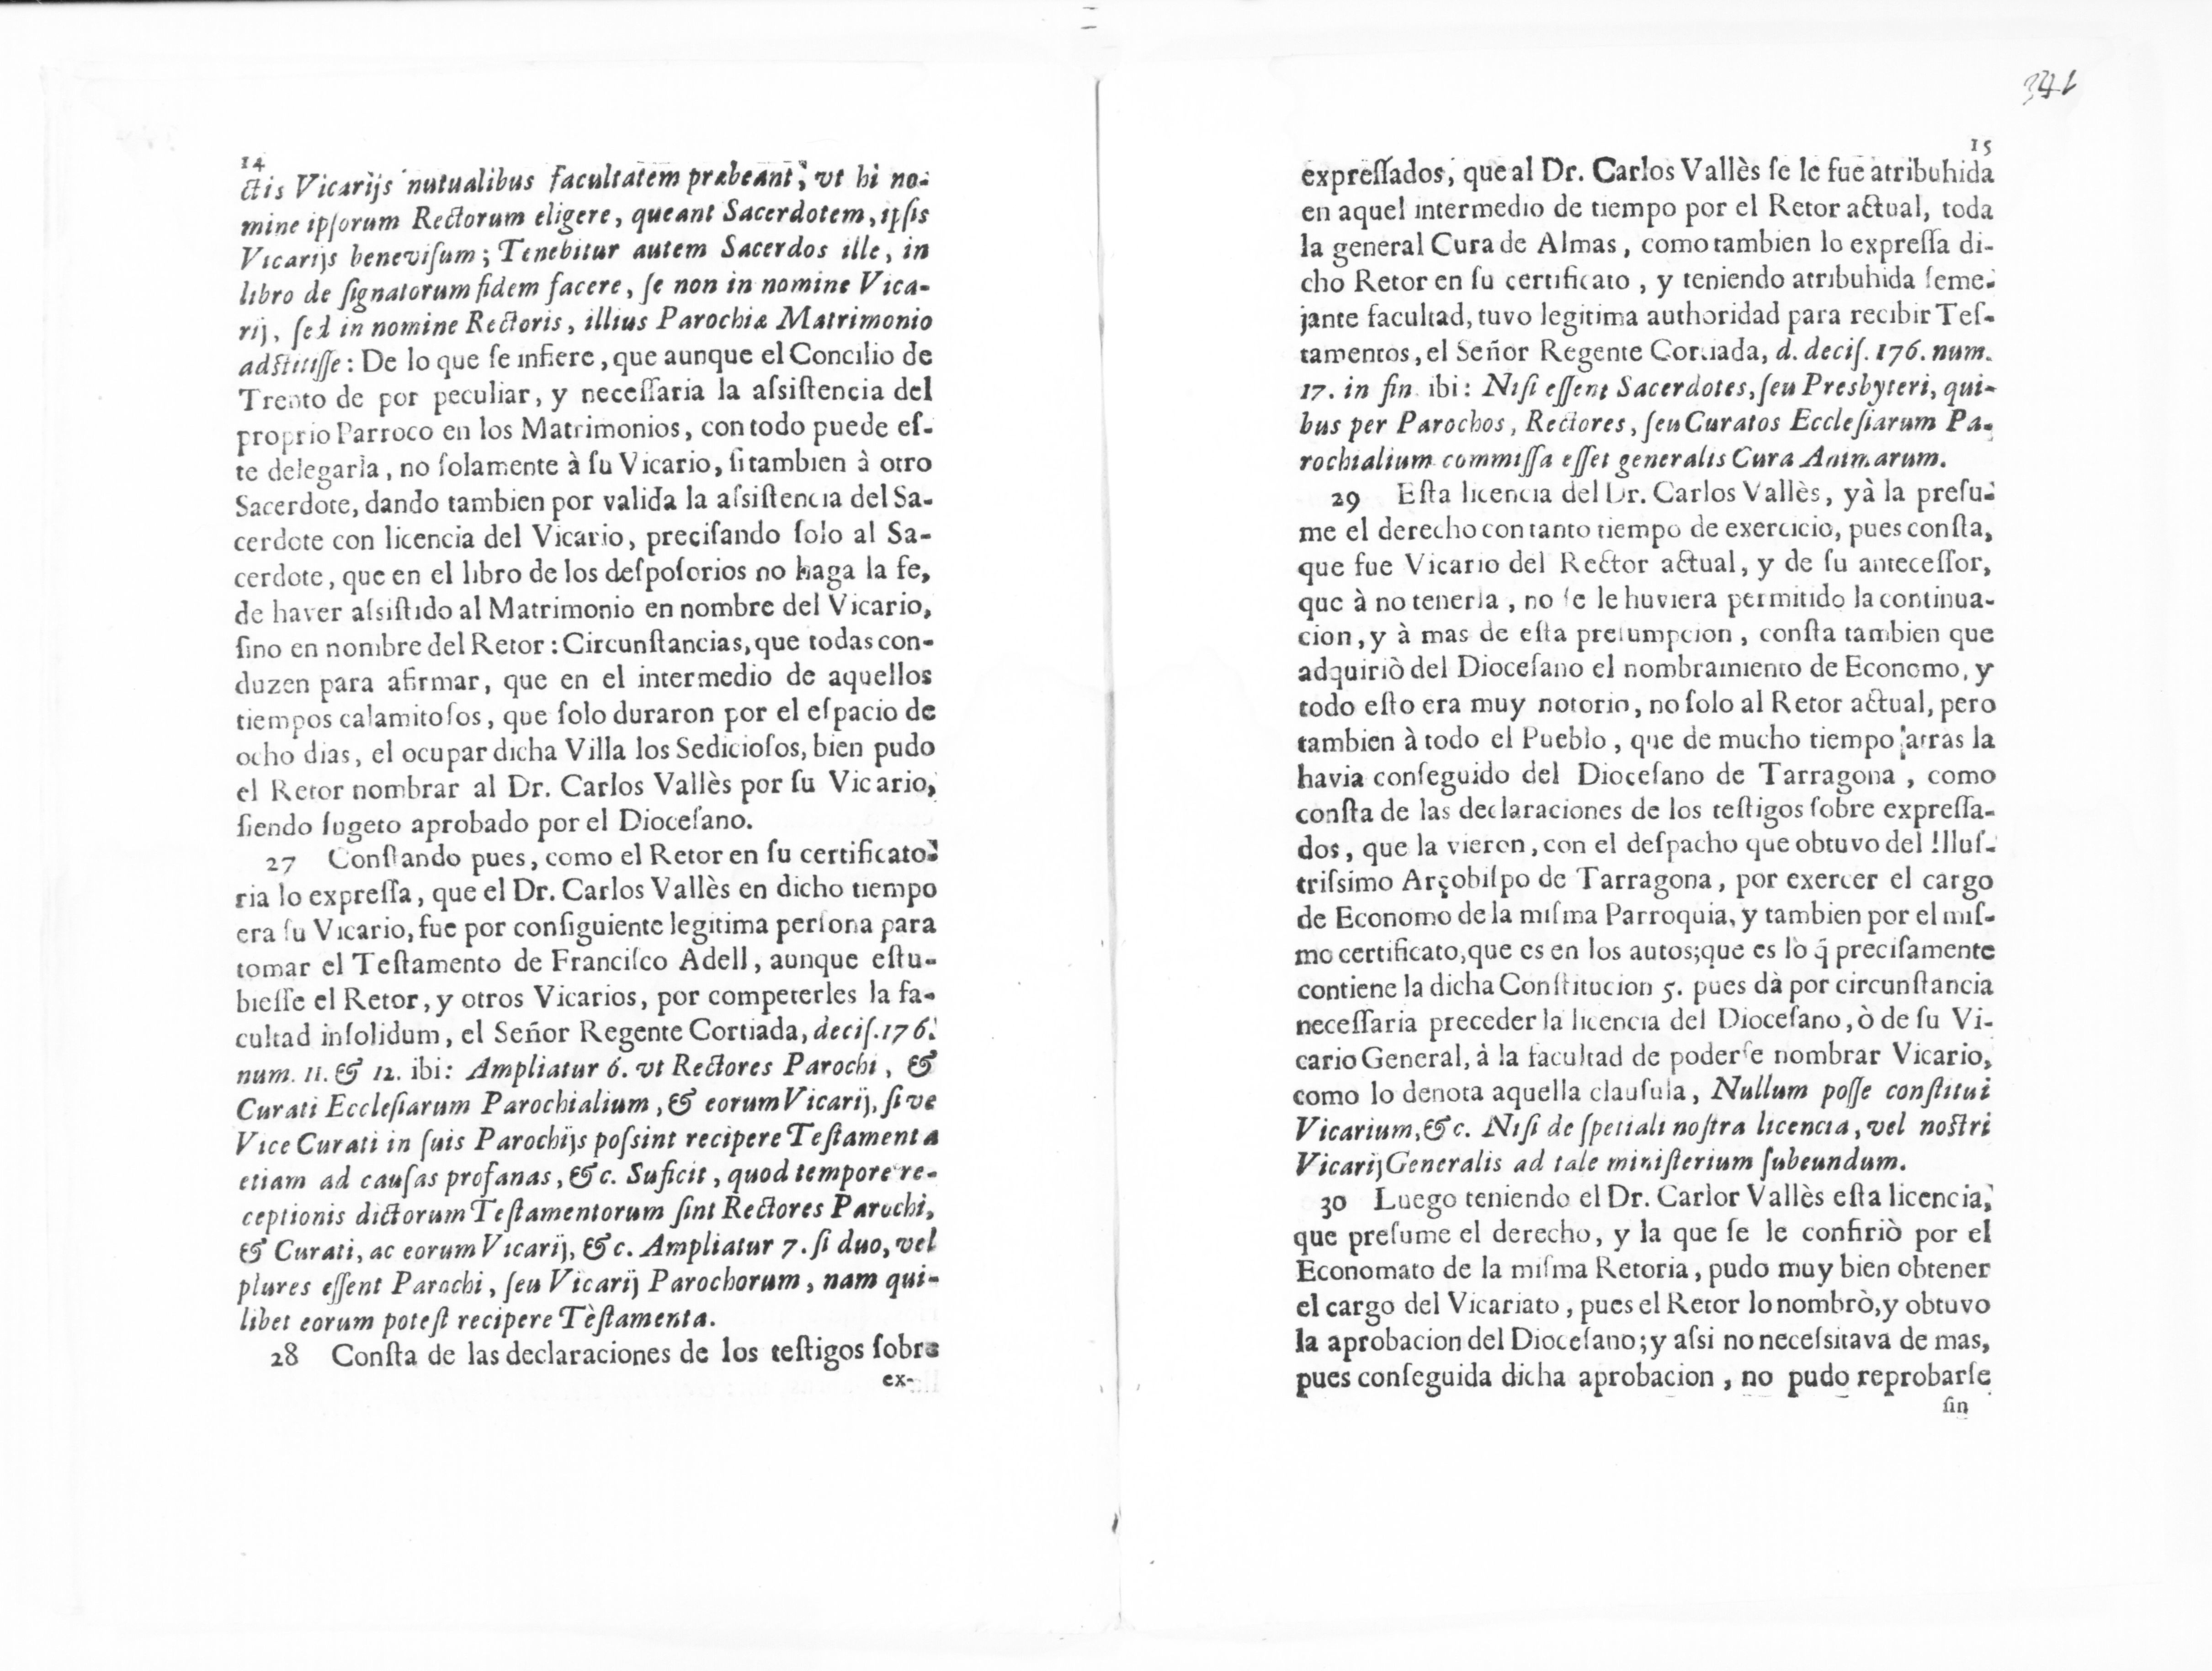 14
ctis Vicarijs nutualibus facultatem præbeant, vt hi no-
mine ipſorum Rectorum eligere, queant Sacerdotem, ipſis
Vicarijs beneviſum; Tenebitur autem Sacerdos ille, in
libro de ſignatorum fidem facere, ſe non in nomine Vica-
rij, ſed in nomine Rectoris, illius Parochiæ Matrimonio
adſtitiſſe: De lo que ſe infiere, que aunque el Concilio de
Trento de por peculiar, y neceſſaria la aſsiſtencia del
proprio Parroco en los Matrimonios, con todo puede eſ-
te delegarla, no ſolamente à ſu Vicario, ſi tambien à otro
Sacerdote, dando tambien por valida la aſsiſtencia del Sa-
cerdote con licencia del Vicario, preciſando ſolo al Sa-
cerdote, que en el libro de los deſpoſorios no haga la fe,
de haver aſsiſtido al Matrimonio en nombre del Vicario,
ſino en nombre del Retor: Circunſtancias, que todas con-
duzen para afirmar, que en el intermedio de aquellos
tiempos calamitoſos, que ſolo duraron por el eſpacio de
ocho dias, el ocupar dicha Villa los Sedicioſos, bien pudo
el Retor nombrar al Dr. Carlos Vallès por ſu Vicario,
ſiendo ſugeto aprobado por el Dioceſano.
27 Conſtando pues, como el Retor en ſu certificato-
ria lo expreſſa, que el Dr. Carlos Vallès en dicho tiempo
era ſu Vicario, fue por configuiente legitima perſona para
tomar el Teſtamento de Franciſco Adell, aunque eſtu-
bieſſe el Retor, y otros Vicarios, por competerles la fa-
cultad inſolidum, el Señor Regente Cortiada, deciſ. 176.
num. 11. & 12. ibi: Ampliatur 6. vt Rectores Parochi, &
Curati Eccleſiarum Parochialium, & eorum Vicarij, ſive
Vice Curati in ſuis Parochijs poſsint recipere Teſtamenta
etiam ad cauſas profanas, &c. Suficit, quod tempore re-
ceptionis dictorum Teſtamentorum ſint Rectores Parochi,
& Curati, ac eorum Vicarij, &c. Ampliatur 7. ſi duo, vel
plures eſſent Parochi, ſeu Vicarij Parochorum, nam qui-
libet eorum poteſt recipere Tèſtamenta.
28 Conſta de las declaraciones de los teſtigos ſobre
ex-
341
15
expreſſados, que al Dr. Carlos Vallès ſe le fue atribuhida
en aquel intermedio de tiempo por el Retor actual, toda
la general Cura de Almas, como tambien lo expreſſa di-
cho Retor en ſu certificato, y teniendo atribuhida ſeme-
jante facultad, tuvo legitima authoridad para recibir Teſ-
tamentos, el Señor Regente Cortiada, d. deciſ. 176. num.
17. in fin. ibi: Niſi eſſent Sacerdotes, ſeu Presbyteri, qui-
bus per Parochos, Rectores, ſeu Curatos Eccleſiarum Pa-
rochialium commiſſa eſſet generalis Cura Animarum.
29 Eſta licencia del Dr. Carlos Vallès, yà la preſu-
me el derecho con tanto tiempo de exercicio, pues conſta,
que fue Vicario del Rector actual, y de ſu anteceſſor,
que à no tenerla, no ſe le huviera permitido la continua-
cion, y à mas de eſta preſumpcion, conſta tambien que
adquiriò del Dioceſano el nombramiento de Economo, y
todo eſto era muy notorio, no ſolo al Retor actual, pero
tambien à todo el Pueblo, que de mucho tiempo atras la
havia conſeguido del Dioceſano de Tarragona, como
conſta de las declaraciones de los teſtigos ſobre expreſſa-
dos, que la vieron, con el deſpacho que obtuvo del Illuſ-
triſsimo Arçobiſpo de Tarragona, por exercer el cargo
de Economo de la miſma Parroquia, y tambien por el miſ-
mo certificato, que es en los autos; que es lo q̃ preciſamente
contiene la dicha Conſtitucion 5. pues dà por circunſtancia
neceſſaria preceder la licencia del Dioceſano, ò de ſu Vi-
cario General, à la facultad de poderſe nombrar Vicario,
como lo denota aquella clauſula, Nullum poſſe conſtitui
Vicarium, &c. Niſi de ſpetiali noſtra licencia, vel noſtri
Vicarij Generalis ad tale miniſterium ſubeundum.
30 Luego teniendo el Dr. Carlor Vallès eſta licencia,
que preſume el derecho, y la que ſe le confiriò por el
Economato de la miſma Retoria, pudo muy bien obtener
el cargo del Vicariato, pues el Retor lo nombrò, y obtuvo
la aprobacion del Dioceſano; y aſsi no neceſsitava de mas,
pues conſeguida dicha aprobacion, no pudo reprobarſe
ſin